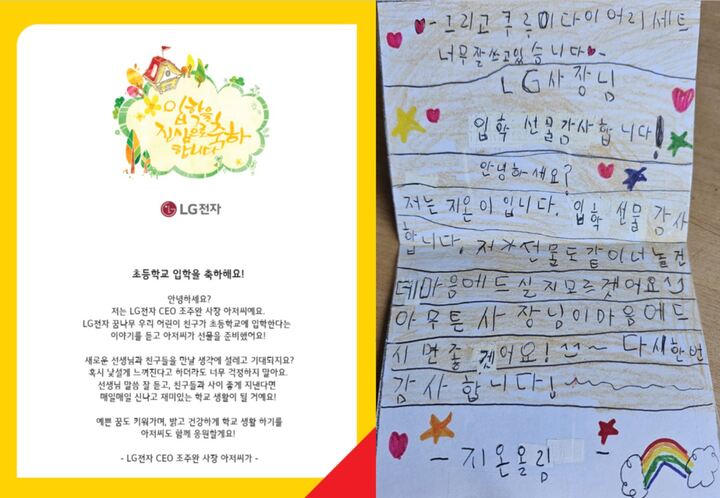 입학을
진심으로 축하
합니다
LG전자
초등학교 입학을 축하해요!
안녕하세요?
저는 LG전자 CEO 조주완 사장 아저씨예요.
LG전자 꿈나무 우리 어린이 친구가 초등학교에 입학한다는
이야기를 듣고 아저씨가 선물을 준비했어요!
새로운 선생님과 친구들을 만날 생각에 설레고 기대되지요?
혹시 낯설게 느껴진다고 하더라도 너무 걱정하지 말아요.
선생님 말씀 잘 듣고, 친구들과 사이 좋게 지낸다면
매일매일 신나고 재미있는 학교 생활이 될 거예요!
예쁜 꿈도 키워가며, 밝고 건강하게 학교 생활 하기를
아저씨도 함께 응원할게요!
- LG전자 CEO 조주완 사장 아저씨가 -
- 그리고 쿠루미다이어리세트
너무잘쓰고있습니다
LG사장님
입학 선물감사합니다!
안녕하세요?
저는 지온이입니다. 입학 선물 감사
합니다. 저가 선물도 같이 너놀건
데마음에드실지모르겟어요
아무튼사장님이마음에드
시면좋겟어요! ~ 다시한번
감사합니다!
- 지온올림 -